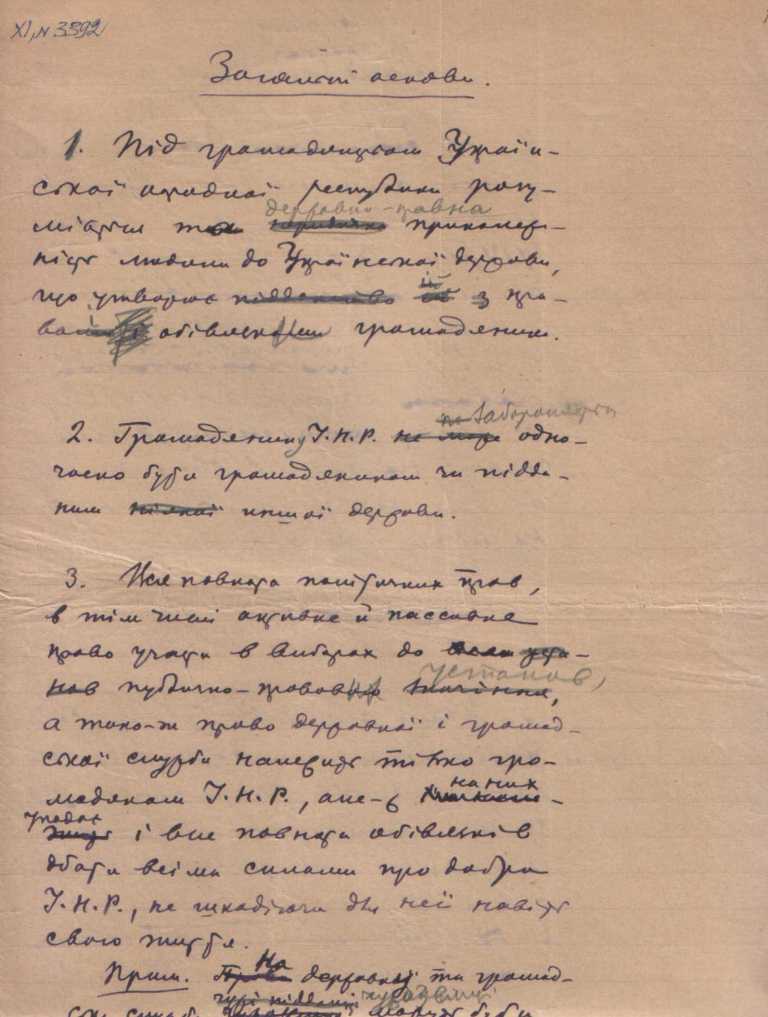 XI, N 3392
Загальні основи.
1. Під громадянством Україн-
ської народної республіки розу-
міється державно-правна
приналеж-
ність людини до Української держави,
що утворює підданство її з пра-
ва обівязки громадянина.
2. Громадянину У.Н.Р. не може забороняється одно-
часно бути громадянином чи підда-
ним ніякої иншої держави.
3. Уся повнота політичних прав,
в тім числі активне й пассивне
право участи в виборах до уста-
нов установ,
публично-правових значіння,
а тако-ж право державної і громад-
ської служби належить тілько гро-
мадянам У.Н.Р., але-ж на них
упадає і вся повнота обівязків
дбати всіма силами про добро
У.Н.Р., не шкадуючи для неї навіть
свого життя.
Прим. Право На державній та громад-
чужі піддані чужоземці
ські служби можуть бути